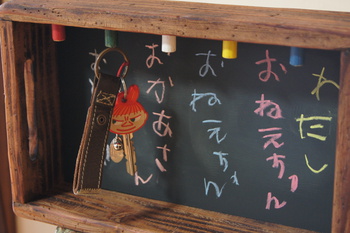 わたし
おねえちゃん
おねえちゃん
おかあさん